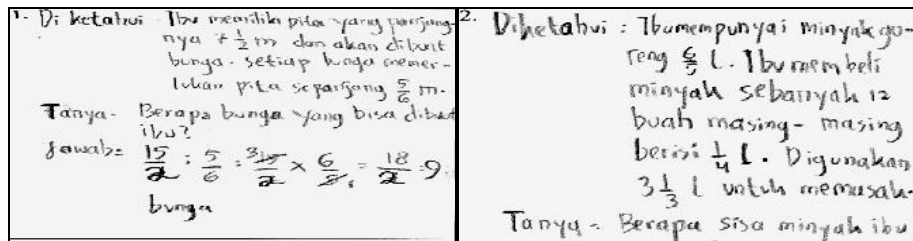 1. Diketahui Ibu memiliki pita yang panjang-
nya 7 1/2 m dan akan dibuat
bunga. setiap bunga memer-
lukan pita sepanjang 5/6 m.
Tanya- Berapa bunga yang bisa dibuat
ibu?
Jawab= 15/2 : 5/6 = 3 15/2 x 6/5 1 = 18/2 = 9
bunga
2. Diketahui : Ibu mempunyai minyak go-
reng 6/5 l. Ibu membeli
minyak sebanyak 12
buah masing-masing
berisi 1/4 l. Digunakan
3 1/3 l untuk memasak.
Tanya = Berapa sisa minyak ibu